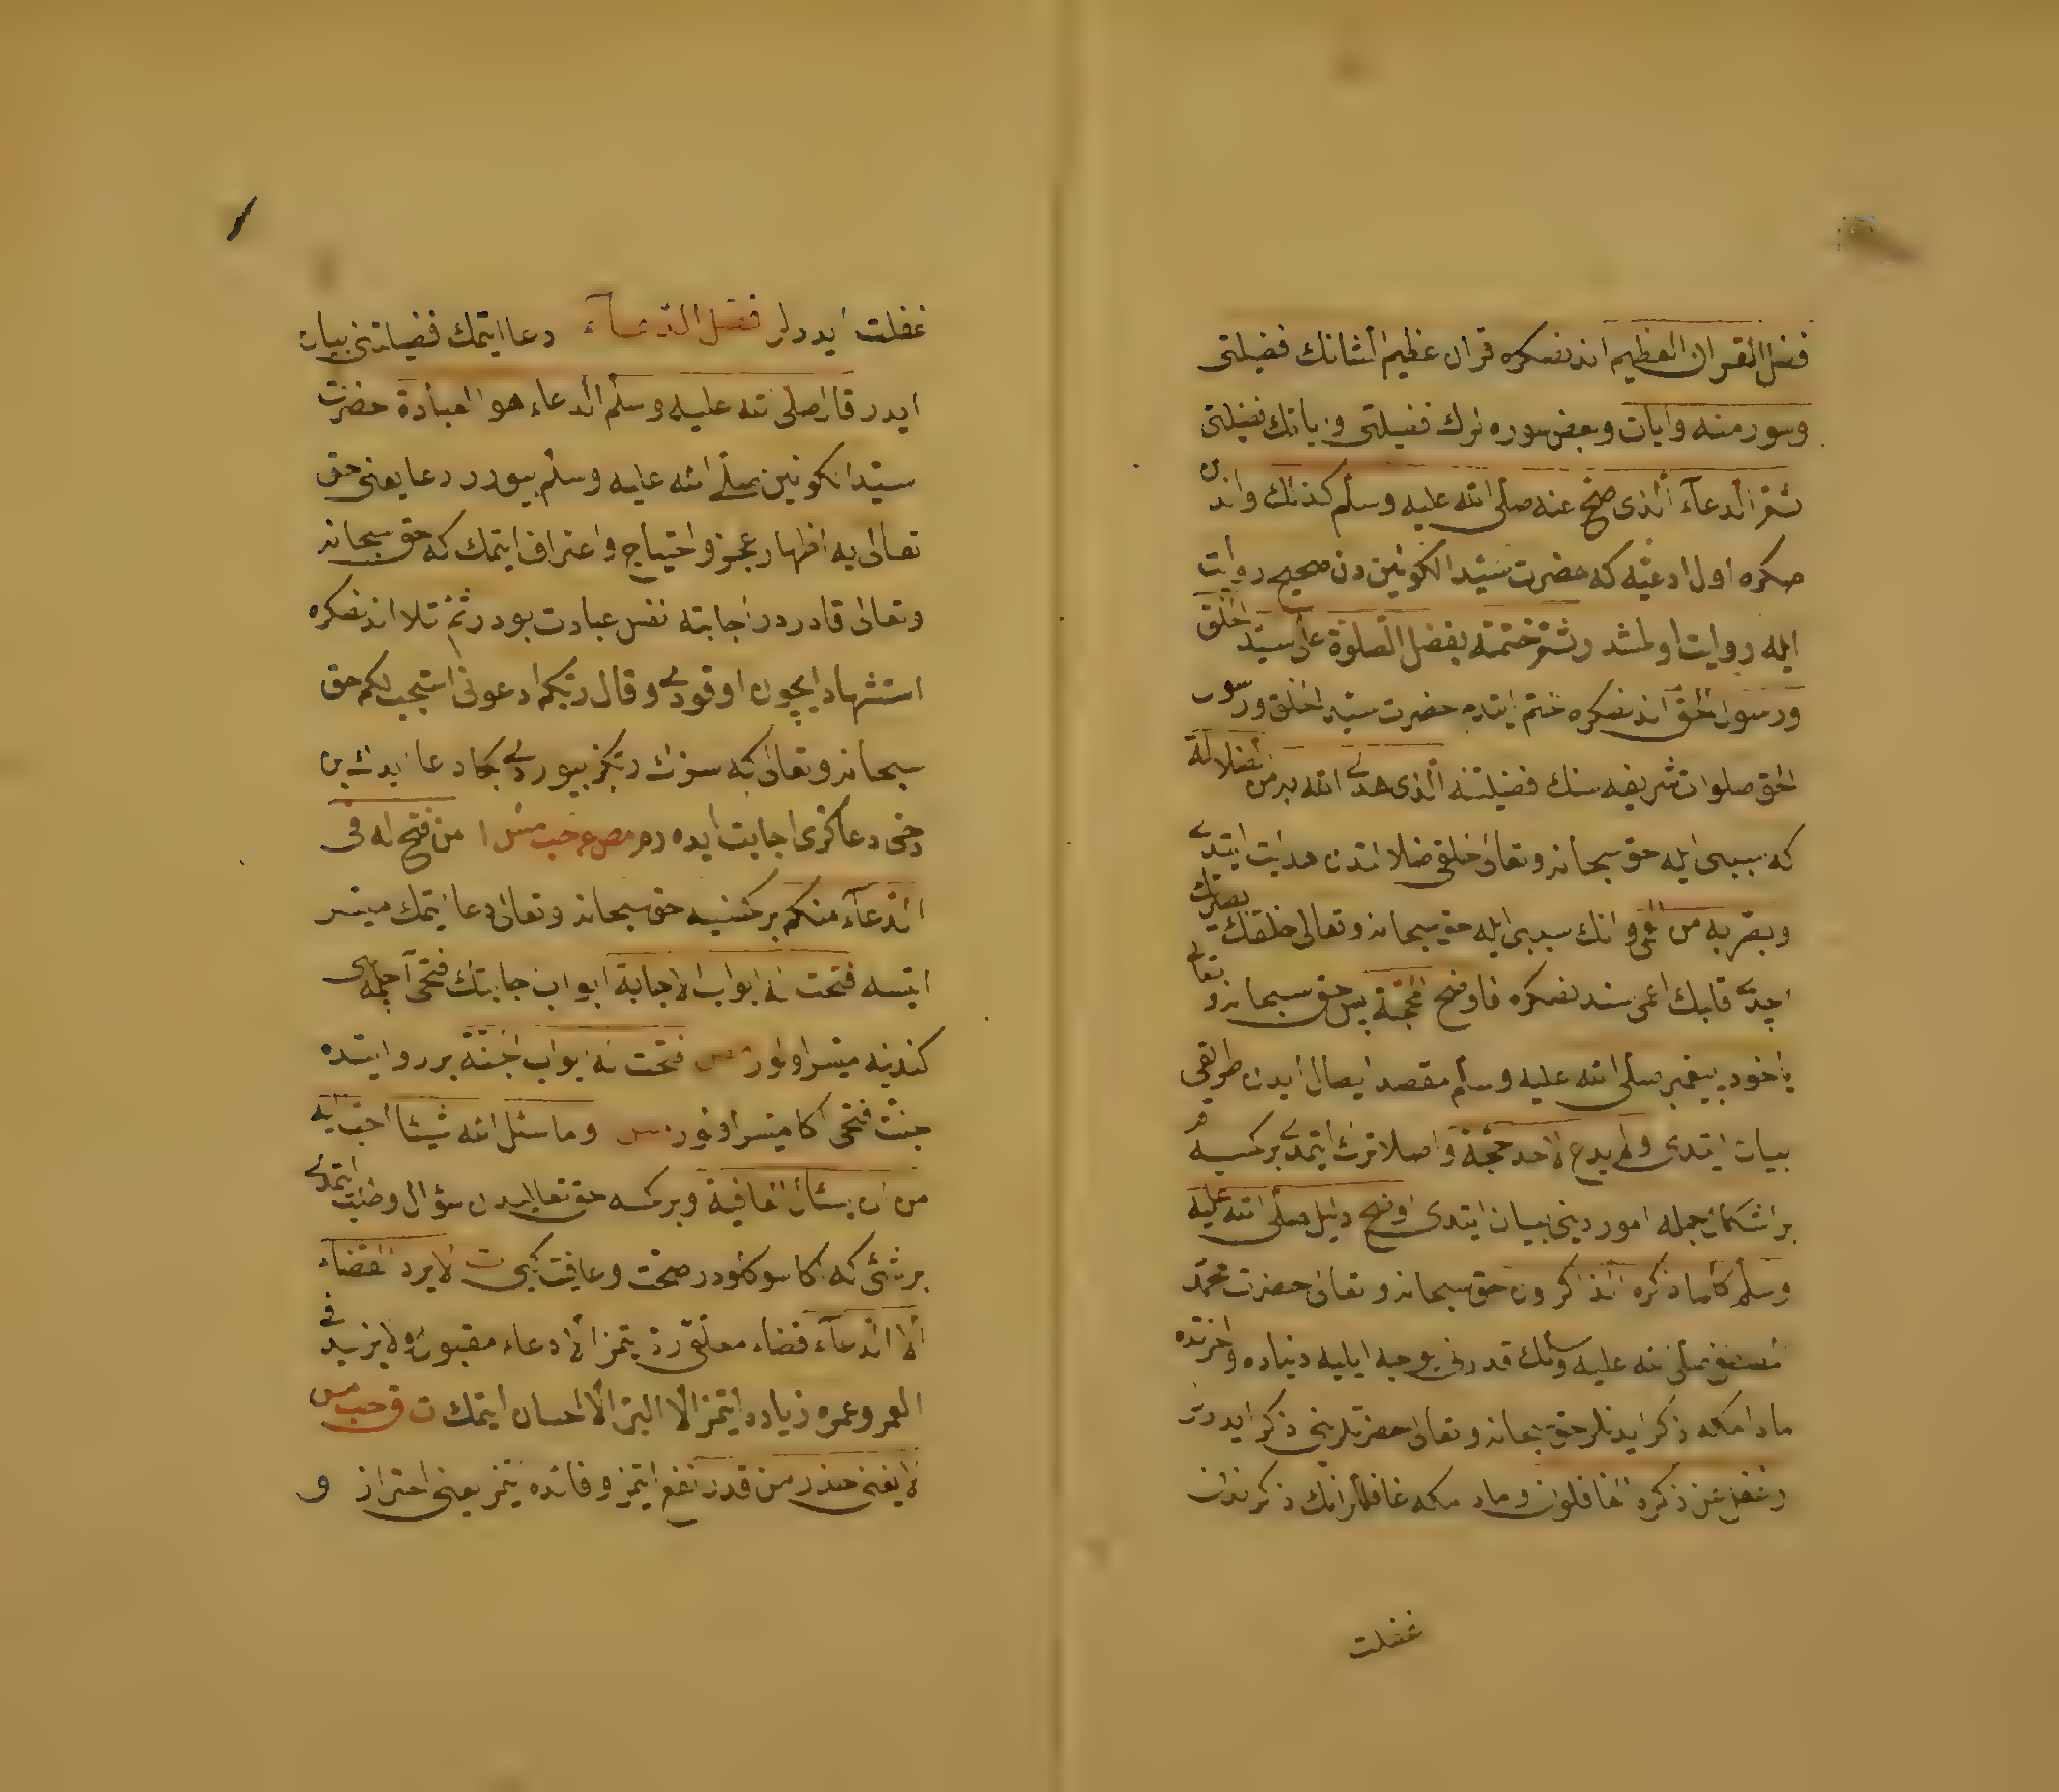 فضل القران العظيم اندنصكره قران عظيم الشانك فضيلتى
وسور منه وايات وبعض سوره لرك فضيلتى واياتك فضيلتى
ثم الدعاء الذى صح عنه صلى الله عليه وسلم كذلك واندن
صكره اول ادعيه كه حضرت سيد الكونين دن صحيح روايت
ايله روايت اولمشدر ثم ختمته بفضل الصلوة على سيد الخلق
ورسول الحق اندنصكره ختم ايتدم حضرت سيد الخلق ورسول
الحق صلوات شريفه سنك فضيلتنه الذى هدى الله به من الضلالة
كه سببى ايله حق سبحانه وتعالى خلقى ضلالتدن هدايت ايتدى
وبصر به من العمى وانك سببى ايله حق سبحانه وتعالى خلقنك بصرلرك
اچدى قلبك اعمى سندنصكره فاوضح المحجة پس حق سبحانه وتعالى
ياخود پيغمبر صلى الله عليه وسلم مقصده ايصال ايدن طريقى
بيان ايتدى ولم يدع لاحد حجة واصلا ترك ايتمدى بر كمسيه
بر اشكال جمله امور دينى بيان ايتدى اوضح دليل صلى الله عليه
وسلم كلما ذكره الذاكرون حق سبحانه وتعالى حضرت محمد
مصطفى صلى الله عليه وسلمك قدرنى يوجه ايليه دنياده واخرتده
مادامكه ذكر ايدنلر حق سبحانه وتعالى حضرتلرينى ذكر ايدرلر
وغفل عن ذكره الغافلون ومادامكه غافللر انك ذكرندن
غفلت
غفلت ايدرلر فضل الدعاء دعا ايتمك فضيلتنى بيان
ايدر قال صلى الله عليه وسلم الدعاء هو العبادة حضرت
سيد الكونين صلى الله عليه وسلم بيورر دعا يعنى حق
تعالى يه اظهار عجز واحتياج واعتراف ايتمك كه حق سبحانه
وتعالى قادردر اجابته نفس عبادت بودر ثم تلا اندنصكره
استشهاد ايچون اوقودى وقال ربكم ادعونى استجب لكم حق
سبحانه وتعالى كه سزك ربكز بيوردى بكا دعا ايدك بن
دخى دعاكزى اجابت ايده رم مص عه حب مس ا من فتح له فى
الدعاء منكم بر كمسيه حق سبحانه وتعالى دعا ايتمك ميسر
ايتسه فتحت له ابواب الاجابة ابواب اجابتك فتحى جمله سى
كندينه ميسر اولور مص فتحت له ابواب الجنة بر روايتده
جنت فتحى اكا ميسر اولور مس وما سئل الله شيئا احب اليه
من ان يسئال العافية وبر كمسه حق تعاليدن سؤال وطلب ايتمدى
بر شئ كه اكا سوكلودر صحت وعافيت كبى ت لا يرد القضاء
الا الدعاء قضاء معلقى رد ايتمز الا دعاء مقبوله ولا يزيد فى
العمر وعمره زياده ايتمز الا البر الا احسان ايتمك ت ق حب مس
لا يغنى حذر من قدر نفع ايتمز وفائده ايتمز يعنى احتراز و